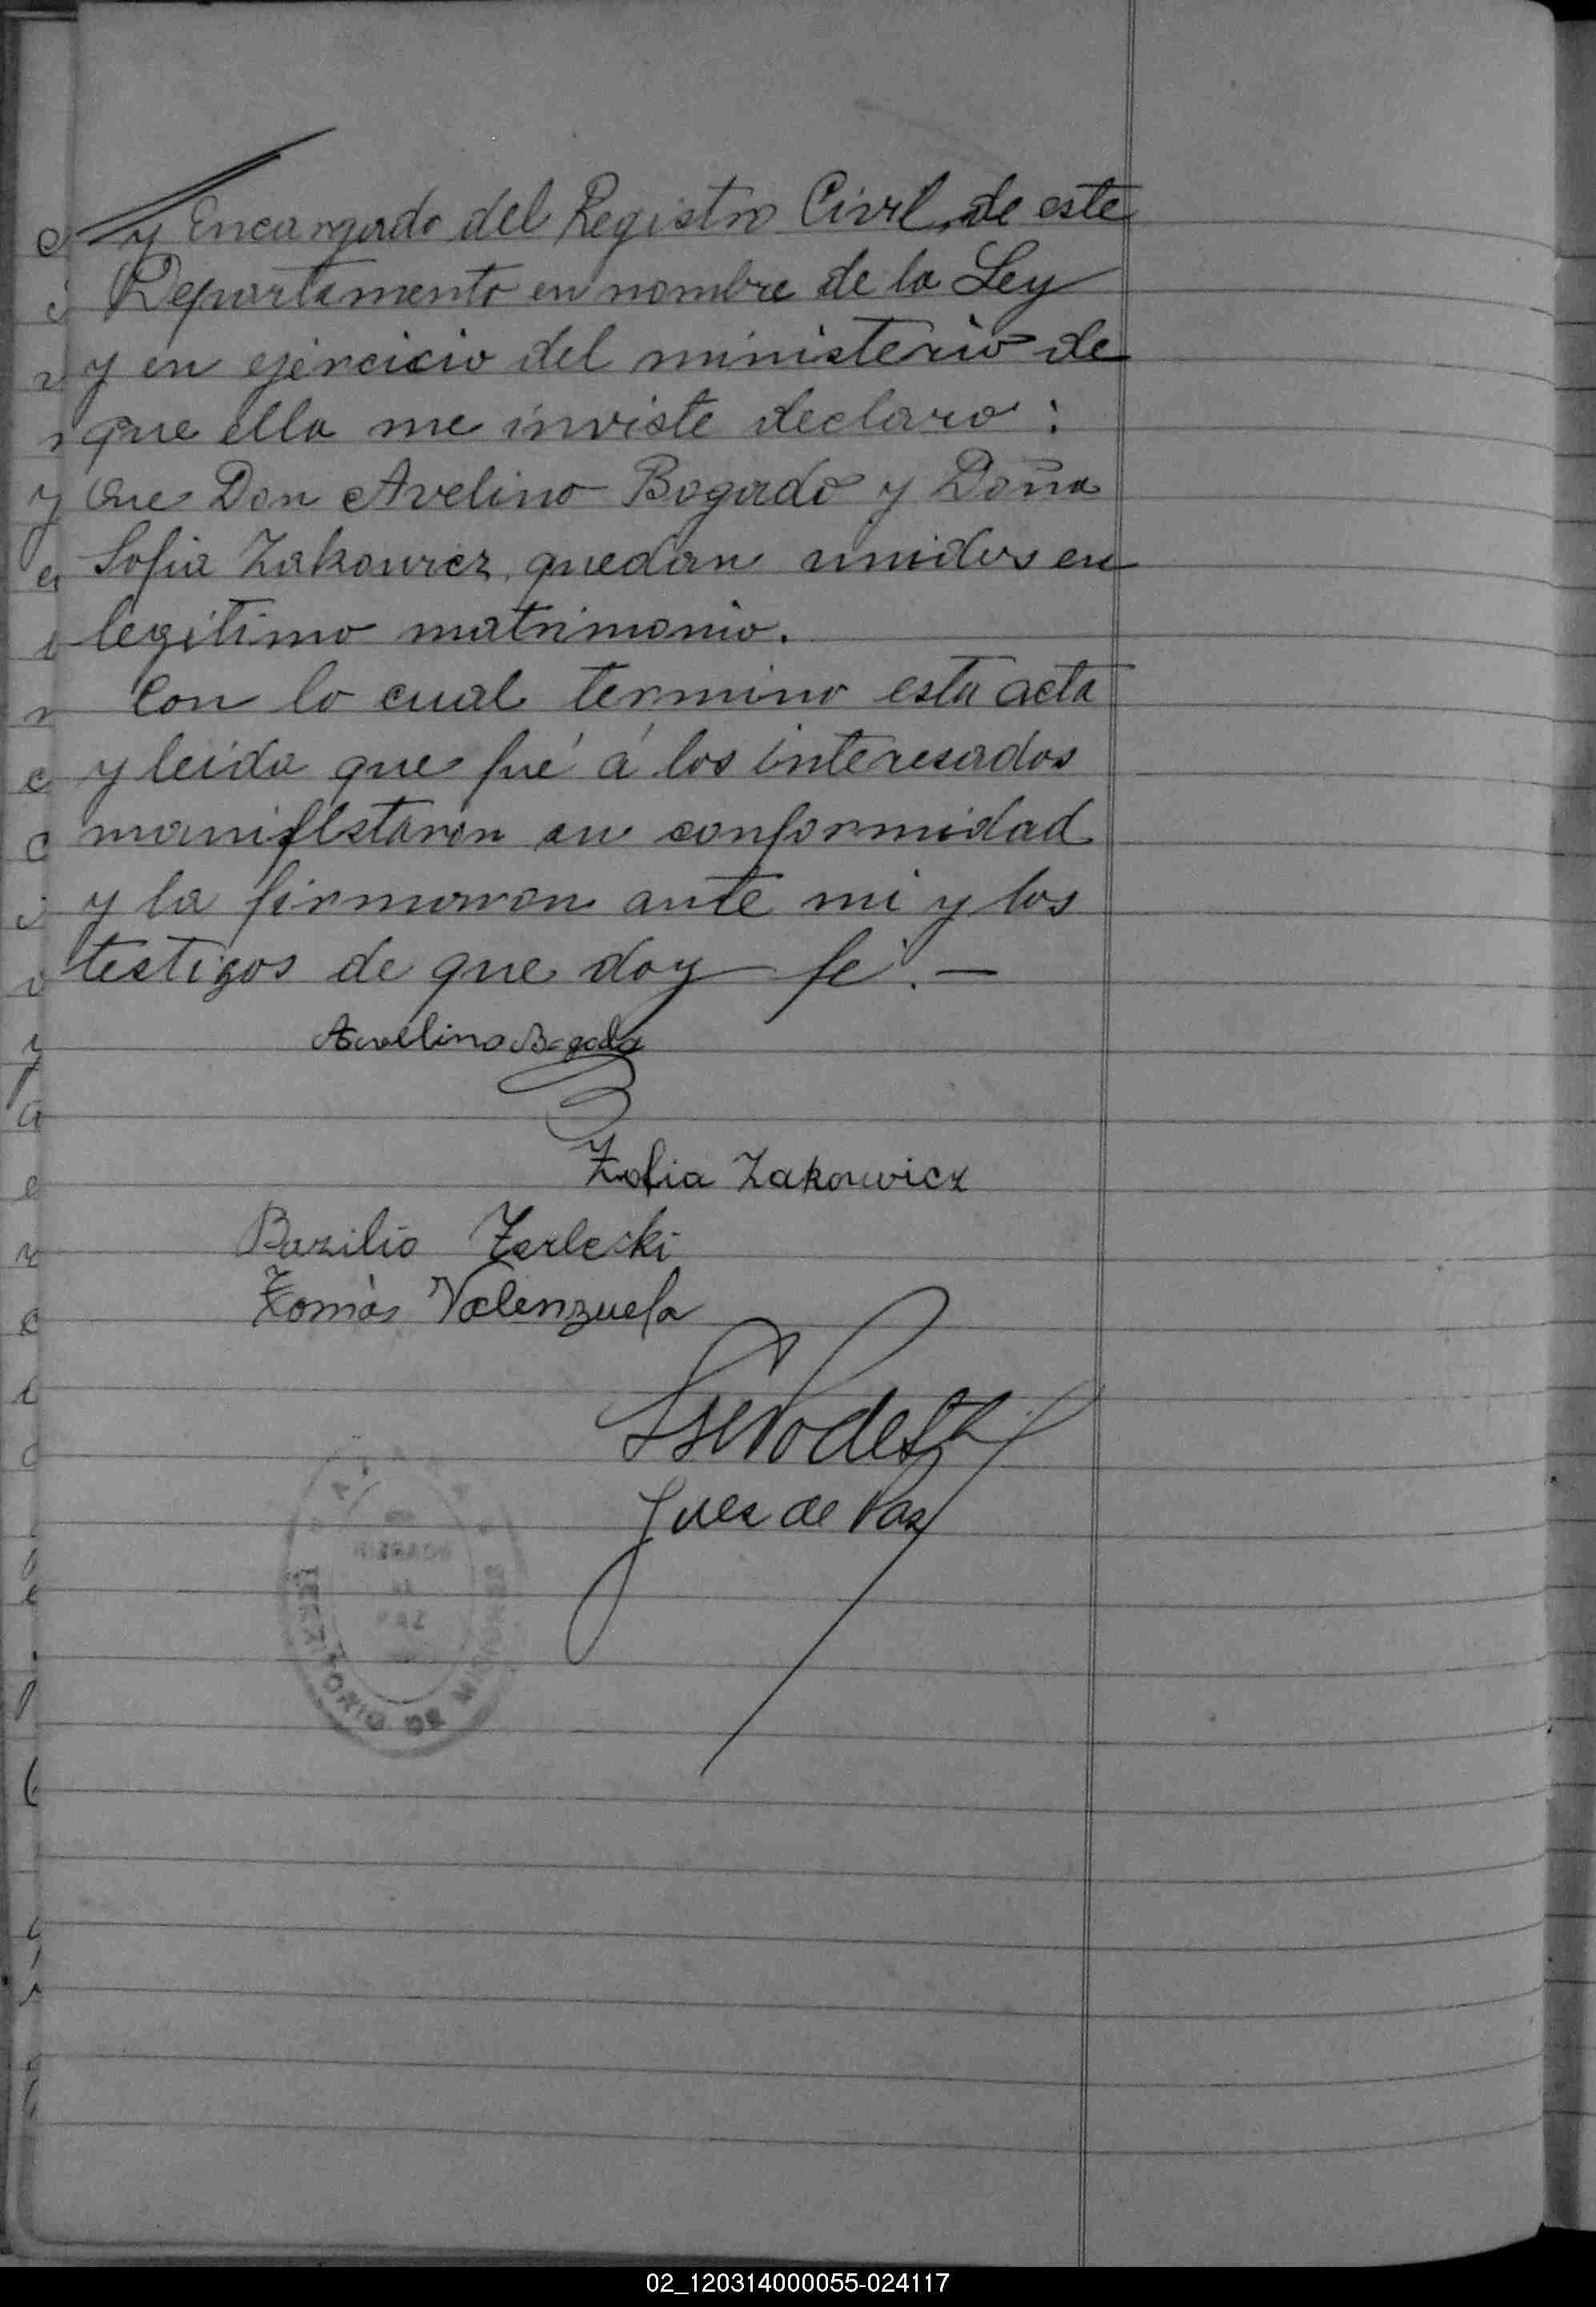 y Encargado del Registro Civil de este
Departamento en nombre de la Ley
y en ejercicio del ministerio de
que ella me inviste declaro :
Que Don Avelino Bogado y Doña
Sofia Zakowicz, quedan unidos en
legitimo matrimonio.
Con lo cual termino esta acta
y leida que fué á los interesados
manifestaron su conformidad
y la firmaron ante mi y los
testigos de que doy fé. —
Avelino Bogado
Zofia Zakowicz
Bazilio Zarleski
Tomás Valenzuela
Juez de Paz
TERRITORIO DE MISIONES
02_120314000055-024117